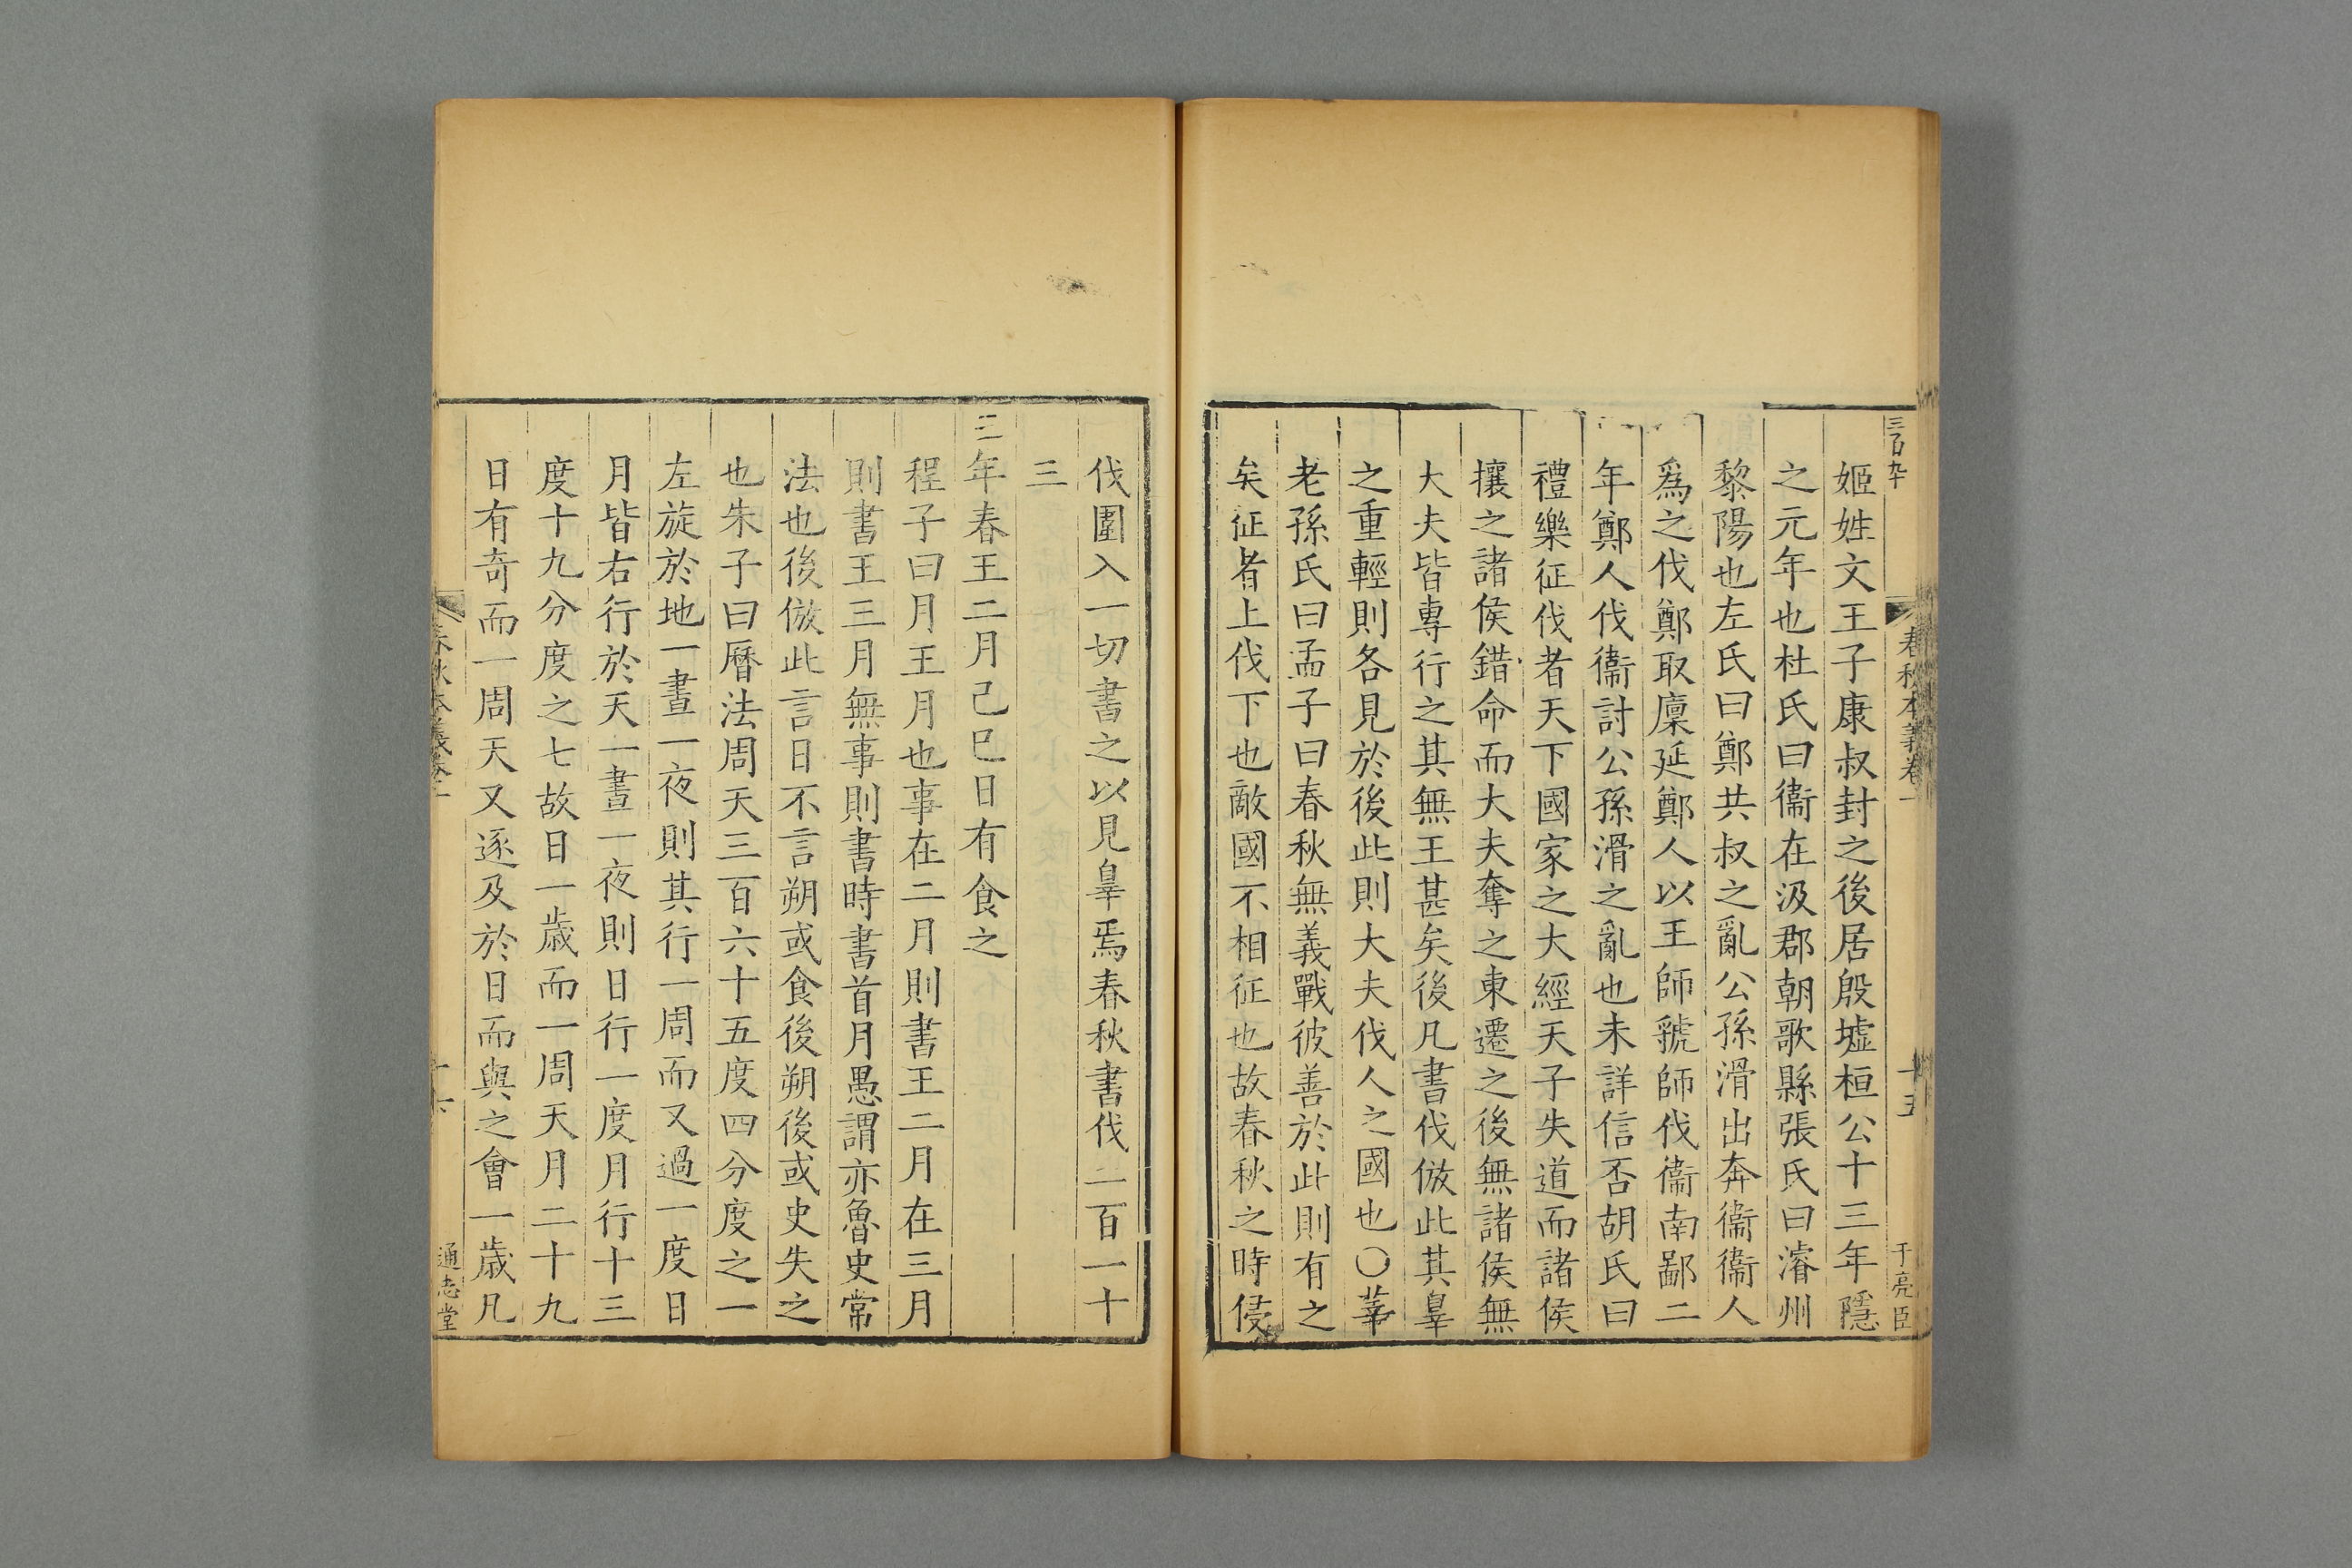 三百九十
春秋本義卷一
十五
于亮臣
姬姓文王子康叔封之後居殷墟桓公十三年隱
之元年也杜氏曰衞在汲郡朝歌縣張氏曰濬州
黎陽也左氏曰鄭共叔之亂公孫滑出奔衞衞人
爲之伐鄭取廩延鄭人以王師虢師伐衞南鄙二
年鄭人伐衞討公孫滑之亂也未詳信否胡氏曰
禮樂征伐者天下國家之大經天子失道而諸侯
攘之諸侯錯命而大夫奪之東遷之後無諸侯無
大夫皆專行之其無王甚矣後凡書伐倣此其辠
之重輕則各見於後此則大夫伐人之國也〇莘
老孫氏曰孟子曰春秋無義戰彼善於此則有之
矣征者上伐下也敵國不相征也故春秋之時侵
伐圍入一切書之以見辠焉春秋書伐二百一十
三
三年春王二月己巳日有食之
程子曰月王月也事在二月則書王二月在三月
則書王三月無事則書時書首月愚謂亦魯史常
法也後倣此言日不言朔或食後朔後或史失之
也朱子曰曆法周天三百六十五度四分度之一
左旋於地一晝一夜則其行一周而又過一度日
月皆右行於天一晝一夜則日行一度月行十三
度十九分度之七故日一歲而一周天月二十九
日有奇而一周天又逐及於日而與之會一歲凡
春秋本義卷一
十六
通志堂